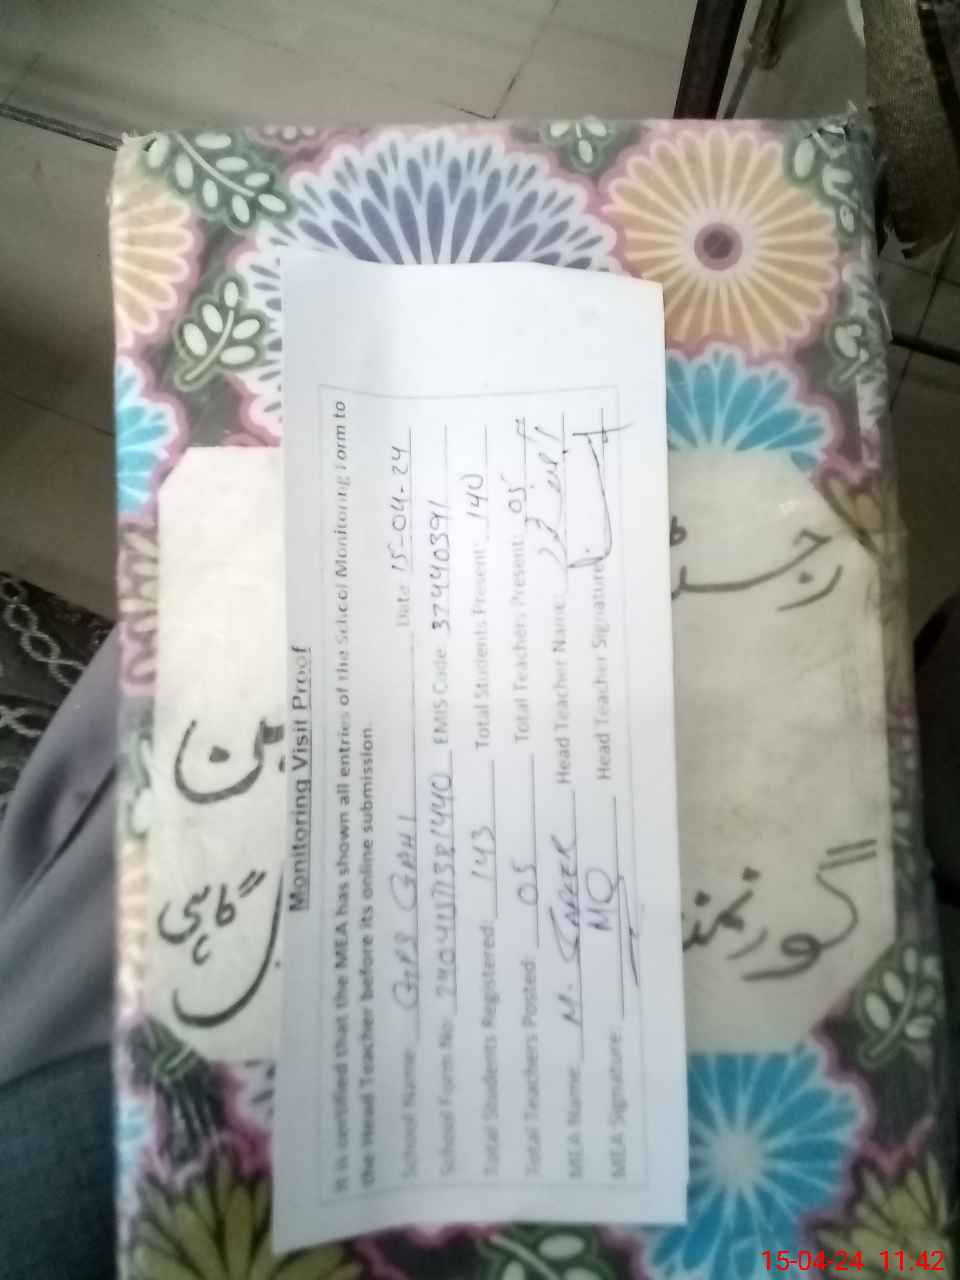 Monitoring Visit Proof
It is certified that the MEA has shown all entries of the School Monitoring Form to
the Head Teacher before its online submission.
School Name: GPS GAHI Date: 15-04-24
School Form No: EMIS Code: 37440391
Total Students Registered: 143 Total Students Present: 140
Total Teachers Posted: 05 Total Teachers Present: 05
MEA Name: M. Head Teacher Name:
MEA Signature: Head Teacher Signature
گورنمنٹ
گاہی
15-04-24 11:42